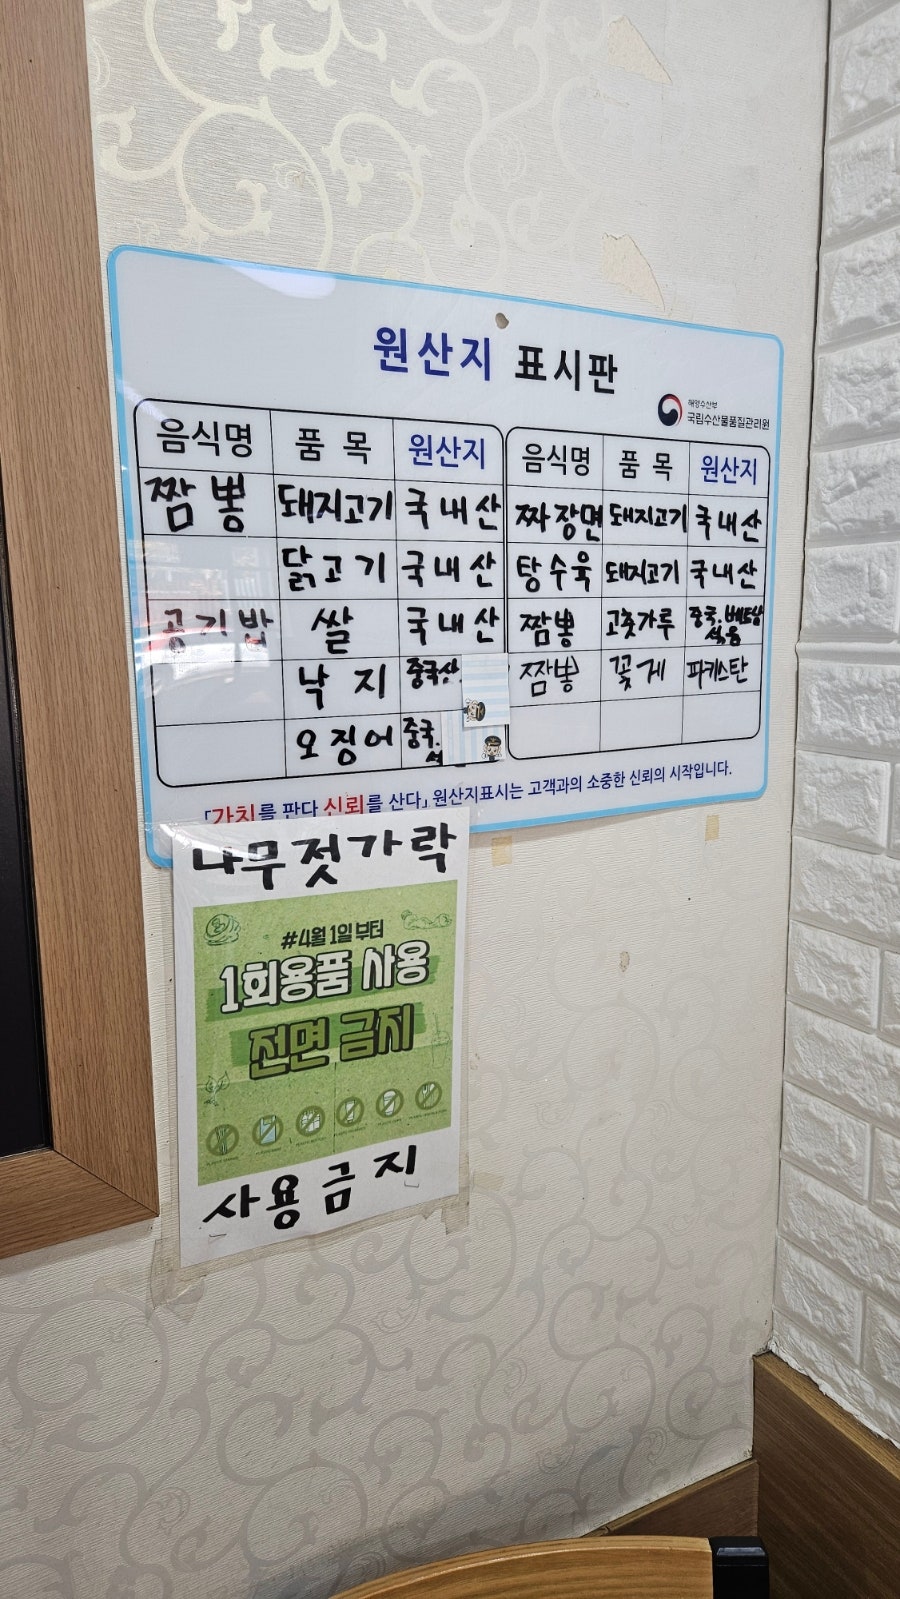 원산지 표시판
해양수산부
국립수산물품질관리원
음식명 품 목 원산지 음식명 품 목 원산지
짬 뽕 돼지고기 국내산 짜장면 돼지고기 국내산
닭고기 국내산 탕수육 돼지고기 국내산
공기밥 쌀 국내산 짬뽕 고춧가루 중국.베트남
섞음
낙 지 중국산 짬뽕 꽃게 파키스탄
오징어 중국.
「가치를 판다 신뢰를 산다」 원산지표시는 고객과의 소중한 신뢰의 시작입니다.
나무젓가락
#4월 1일부터
1회용품 사용
전면 금지
사용금지